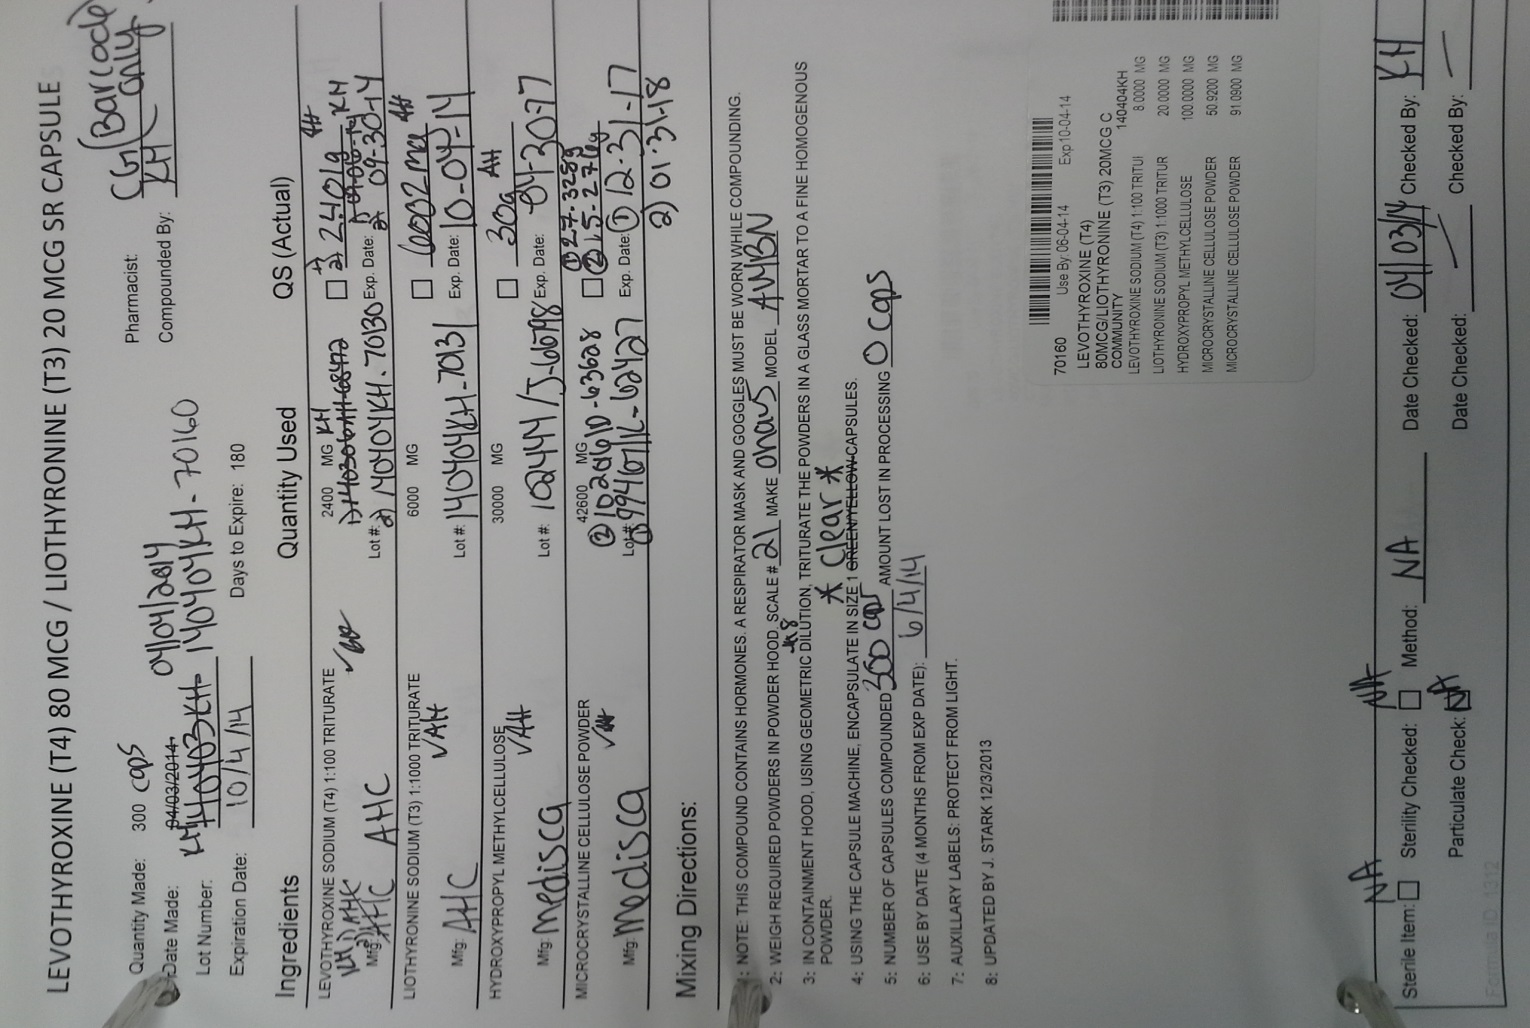 LEVOTHYROXINE (T4) 80 MCG / LIOTHYRONINE (T3) 20 MCG SR CAPSULE
Quantity Made: 300 caps
Pharmacist: CG (Barcode only)
Date Made: 04/03/2014 04/04/2014
Compounded By: KH
Lot Number: 140403KH 140404KH - 70160
Expiration Date: 10/4/14
Days to Expire: 180
Ingredients Quantity Used QS (Actual)
LEVOTHYROXINE SODIUM (T4) 1:100 TRITURATE 2400 MG KH 2.401g
Mfg: AHC AHC Lot #: 2) 140404KH-70130 Exp. Date: 2) 09-30-14
LIOTHYRONINE SODIUM (T3) 1:1000 TRITURATE 6000 MG
Mfg: AHC AH Lot #: 140404KH-70131 Exp. Date: 10-04-14
HYDROXYPROPYL METHYLCELLULOSE 30000 MG 30g AH
Mfg: Medisca AH Lot #: 102444/J-66798 Exp. Date: 04-30-17
MICROCRYSTALLINE CELLULOSE POWDER 42600 MG ① 27.325g ② 15.276g
Mfg: Medisca Lot #: Exp. Date: ① 12-31-17
2) 01-31-18
Mixing Directions:
1: NOTE: THIS COMPOUND CONTAINS HORMONES. A RESPIRATOR MASK AND GOGGLES MUST BE WORN WHILE COMPOUNDING.
2: WEIGH REQUIRED POWDERS IN POWDER HOOD. SCALE # 21 MAKE ohaus MODEL AV43N
3: IN CONTAINMENT HOOD, USING GEOMETRIC DILUTION, TRITURATE THE POWDERS IN A GLASS MORTAR TO A FINE HOMOGENOUS
POWDER.
* clear *
4: USING THE CAPSULE MACHINE, ENCAPSULATE IN SIZE 1 GREEN/YELLOW CAPSULES.
5: NUMBER OF CAPSULES COMPOUNDED 300 caps AMOUNT LOST IN PROCESSING 0 caps
6: USE BY DATE (4 MONTHS FROM EXP DATE): 6/4/14
7: AUXILLARY LABELS: PROTECT FROM LIGHT.
8: UPDATED BY J. STARK 12/3/2013
70160 Use By: 06-04-14 Exp.10-04-14
LEVOTHYROXINE (T4)
80MCG/LIOTHYRONINE (T3) 20MCG C
COMMUNITY 140404KH
LEVOTHYROXINE SODIUM (T4) 1:100 TRITUI 8.0000 MG
LIOTHYRONINE SODIUM (T3) 1:1000 TRITUR 20.0000 MG
HYDROXYPROPYL METHYLCELLULOSE 100.0000 MG
MICROCRYSTALLINE CELLULOSE POWDER 50.9200 MG
MICROCRYSTALLINE CELLULOSE POWDER 91.0900 MG
Sterile Item: NA Sterility Checked: NA Method: NA Date Checked: 04/03/14 Checked By: KH
Particulate Check: NA Date Checked: Checked By:
Formula ID: 1312